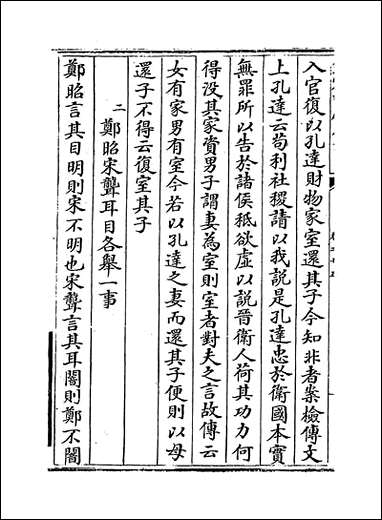 入官復以孔達財物家室還其子今知非者案檢傳文
上孔達云苟利社稷請以我說是孔達忠於衛國本實
無罪所以告於諸侯秪欲虛以說晉衛人荷其功力何
得没其家資男子謂妻為室則室者對夫之言故傳云
女有家男有室今若以孔達之妻而還其子便則以母
還子不得云復室其子
二 鄭昭宋聾耳目各舉一事
鄭昭言其目明則宋不明也宋聾言其耳闇則鄭不闇